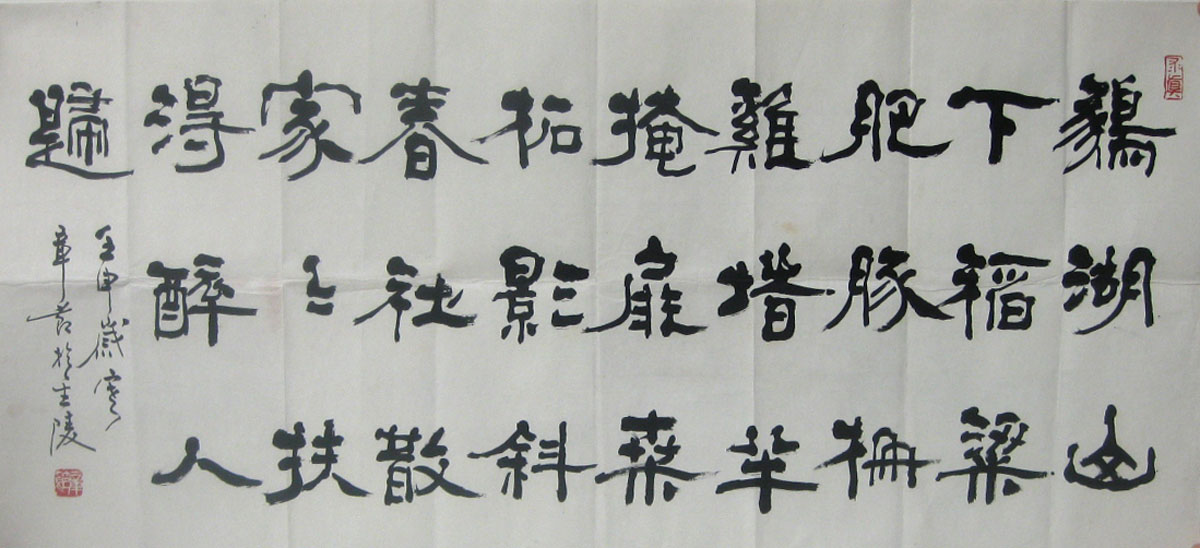 鵝湖山
下稻粱
肥豚柵
雞塒半
掩扉桑
柘影斜
春社散
家〻扶
得醉人
歸
壬申歲寒
章 於 陵